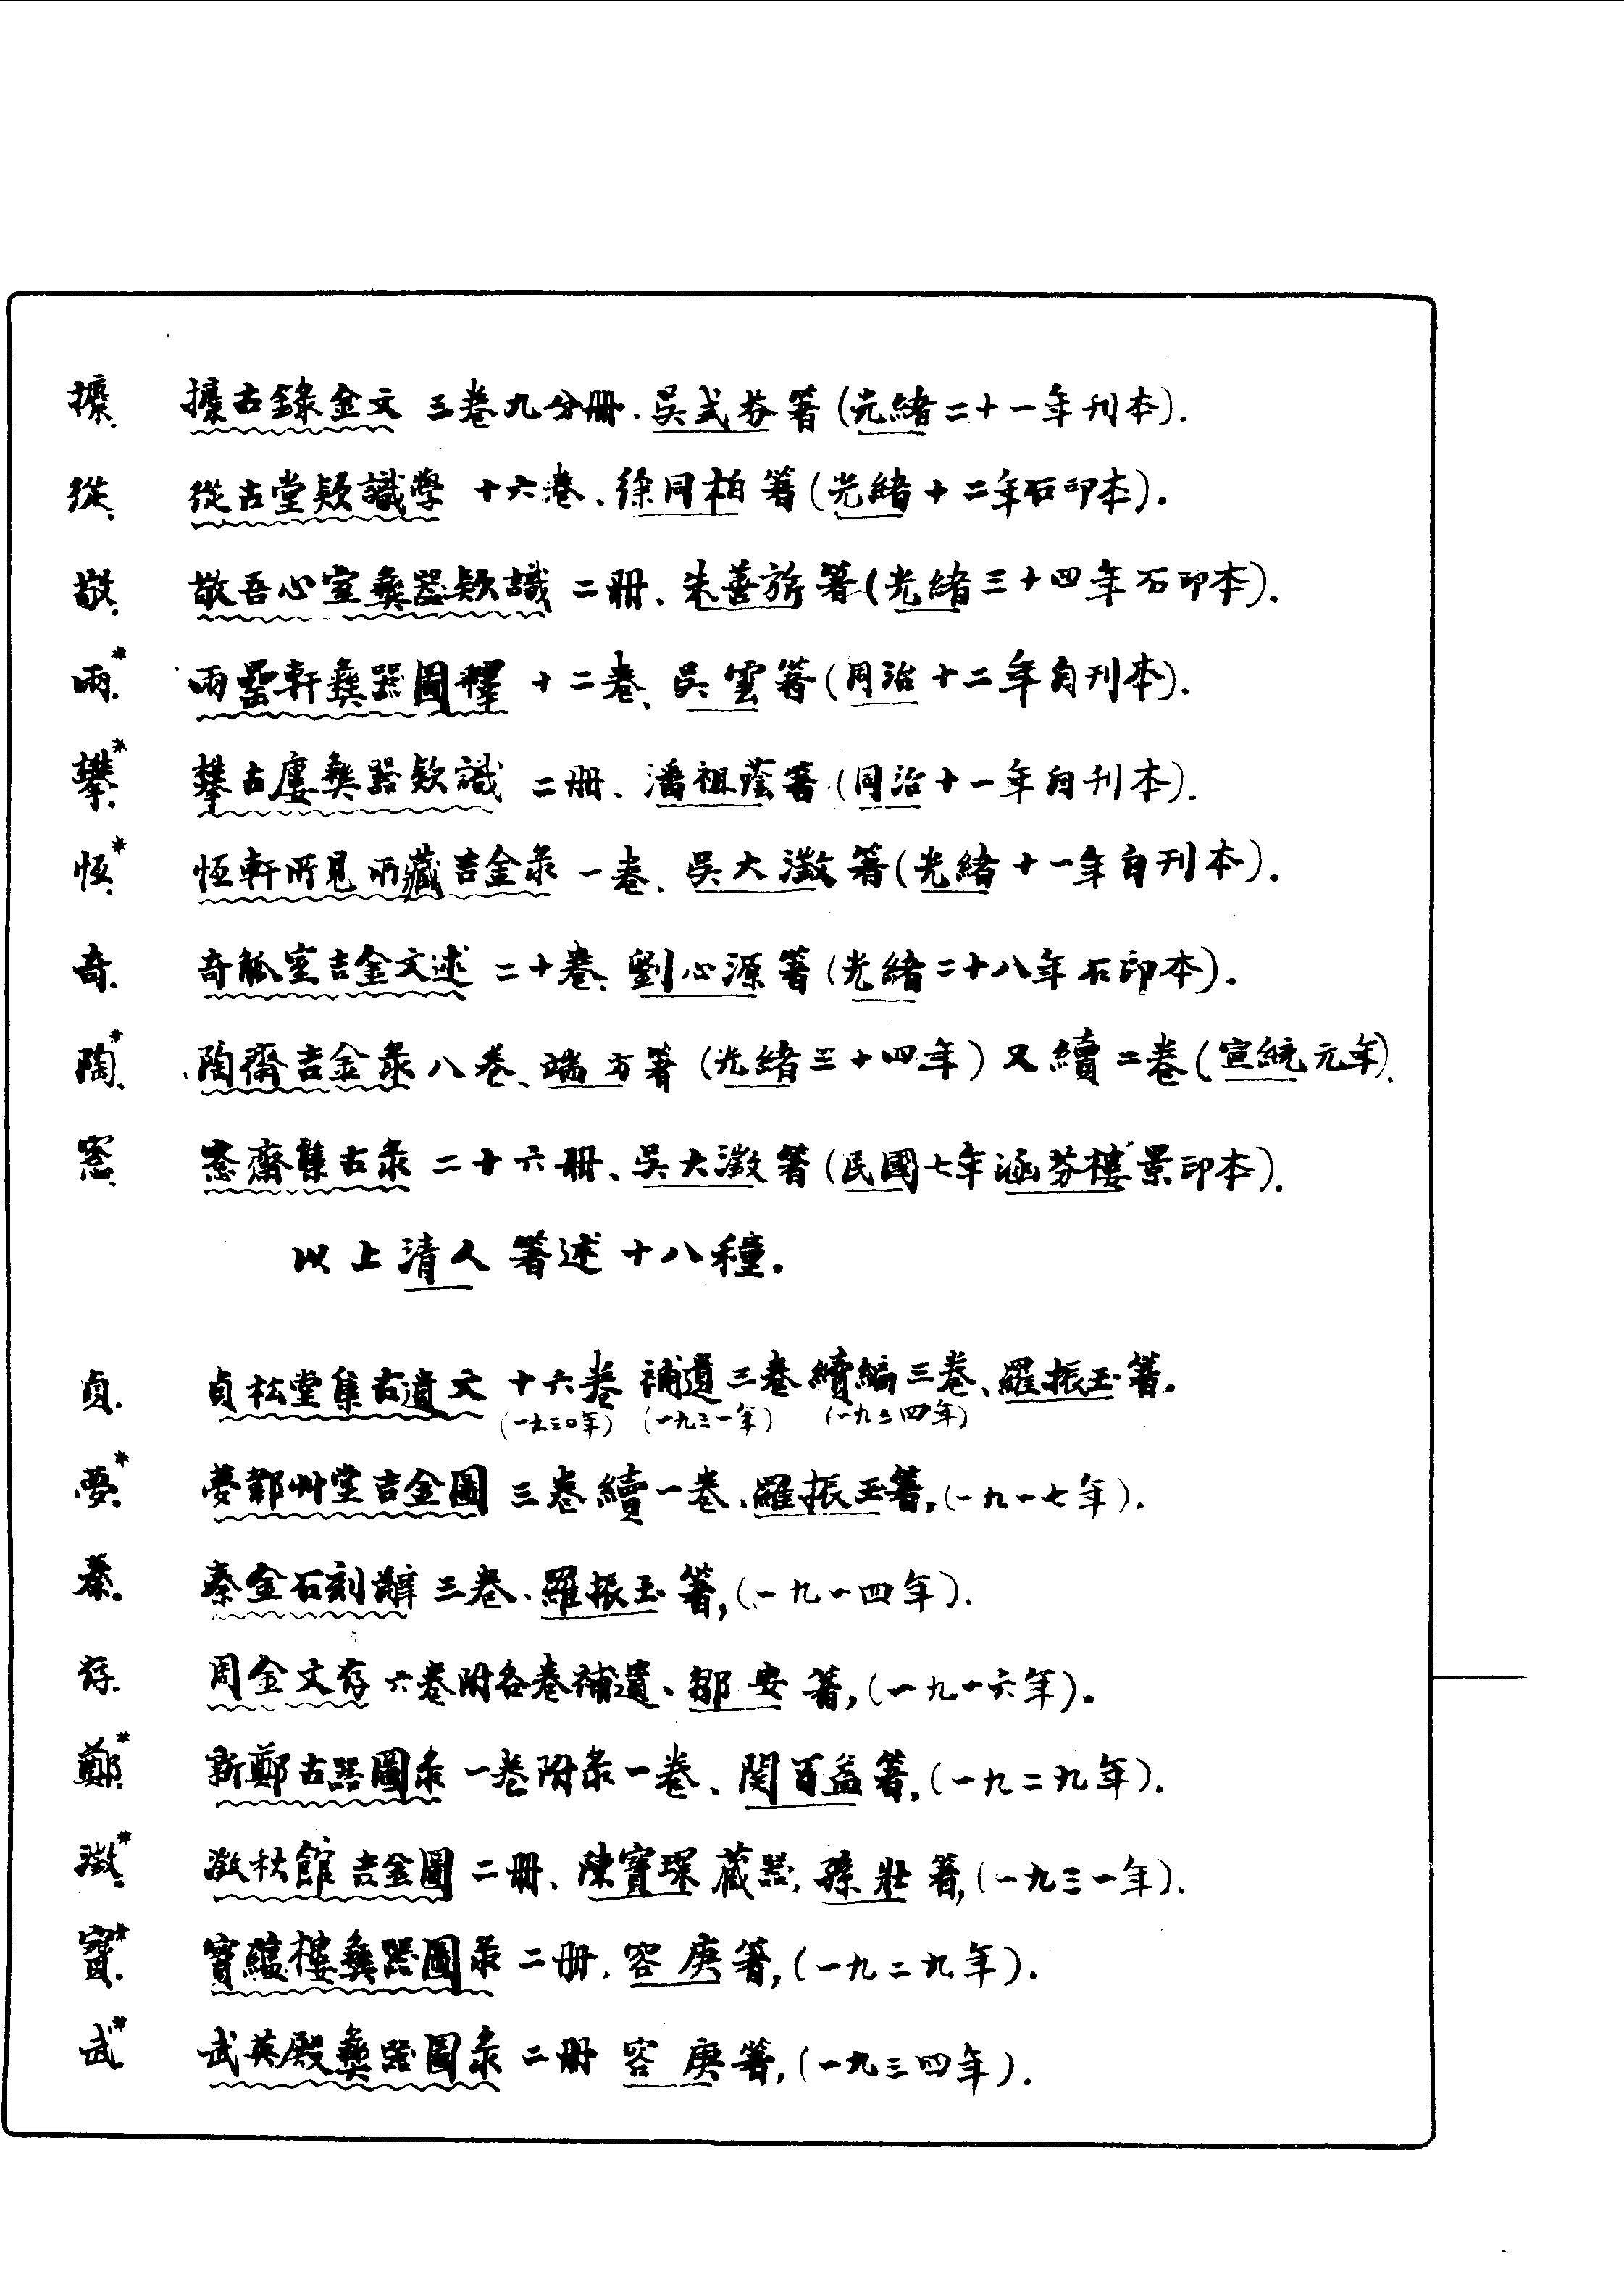 攈. 攈古錄金文 三卷九分冊、吳式芬箸(光緒二十一年刊本).
從. 從古堂款識學 十六卷、徐同柏箸(光緒十二年石印本).
敬. 敬吾心室彝器款識 二冊、朱善旂箸(光緒三十四年石印本).
兩.* 兩罍軒彝器圖釋 十二卷、吳雲箸(同治十二年自刊本).
攀.* 攀古廔彝器款識 二冊、潘祖蔭箸(同治十一年自刊本).
恆.* 恆軒所見所藏吉金彔 一卷、吳大澂箸(光緒十一年自刊本).
奇. 奇觚室吉金文述 二十卷、劉心源箸(光緒二十八年石印本).
陶.* 陶齋吉金彔 八卷、端方箸(光緒三十四年)又續二卷(宣統元年).
窓. 愙齋集古彔 二十六冊、吳大澂箸(民國七年涵芬樓景印本).
以上清人箸述十八種.
貞. 貞松堂集古遺文 十六卷 補遺三卷 續編三卷、羅振玉箸.
(一九三〇年) (一九三一年) (一九三四年)
夢.* 夢郼艸堂吉金圖 三卷續一卷、羅振玉箸,(一九一七年).
秦. 秦金石刻辭 三卷、羅振玉箸,(一九一四年).
存. 周金文存 六卷附各卷補遺、鄒安箸,(一九一六年).
鄭.* 新鄭古器圖彔 一卷附彔一卷、関百益箸,(一九二九年).
澂.* 澂秋館吉金圖 二冊、陳寶琛藏器,孫壯箸,(一九三一年).
寶.* 寶蘊樓彝器圖彔 二冊、容庚箸,(一九二九年).
武.* 武英殿彝器圖彔 二冊 容庚箸,(一九三四年).